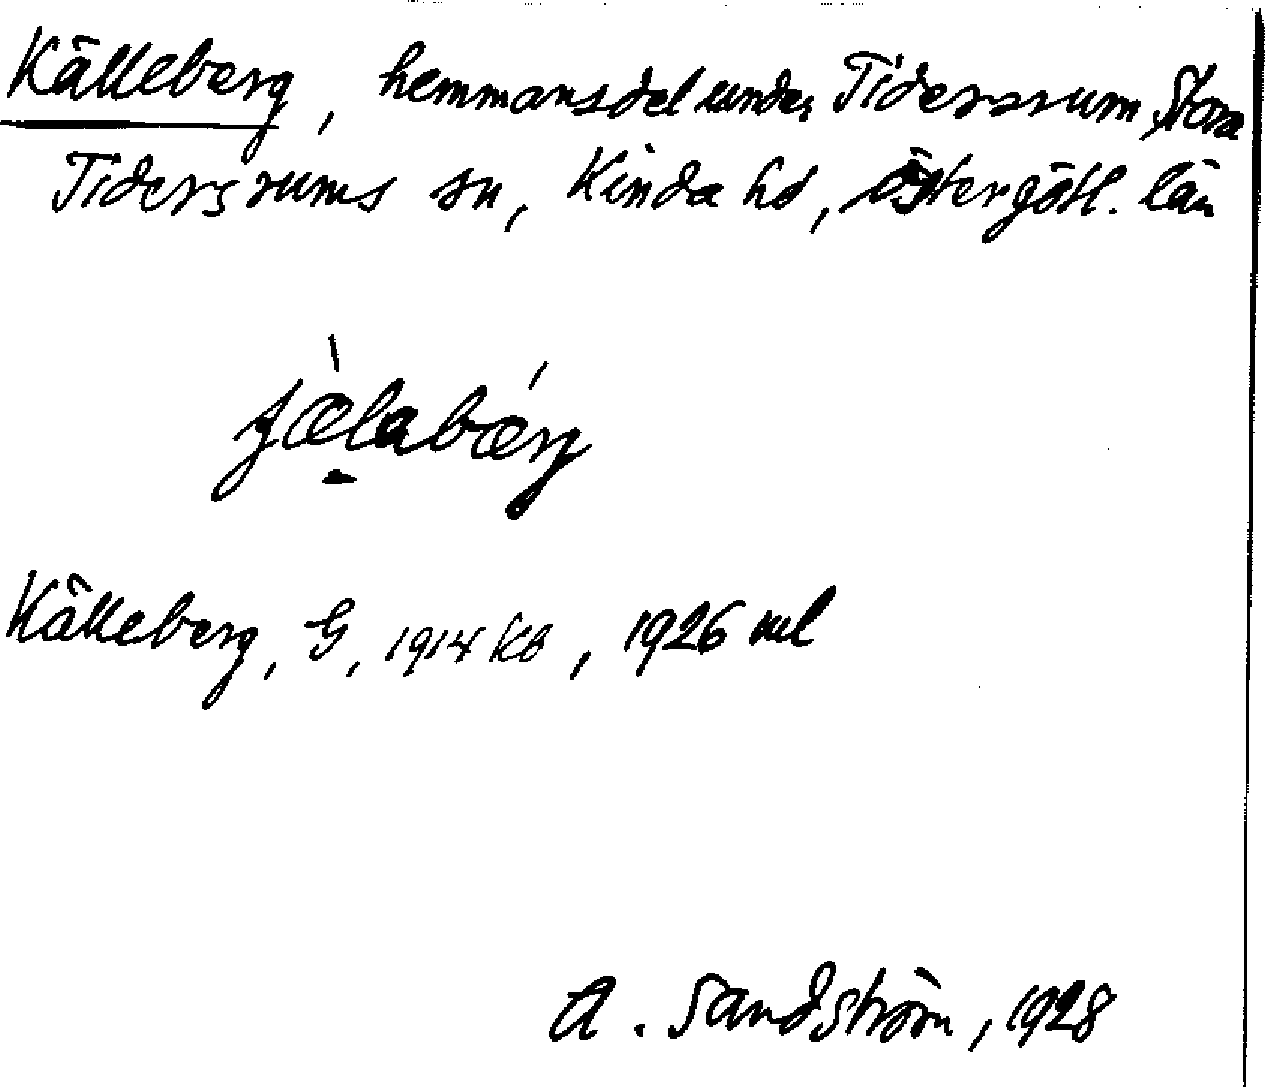 Källeberg, hemmansdel under Tidersrum, Stora
Tidersrums sn, Kinda hd, Östergötl. län
jæ̀labǽrj
Källeberg, G, 1914 Kb, 1926 ml
A. Sandström, 1928